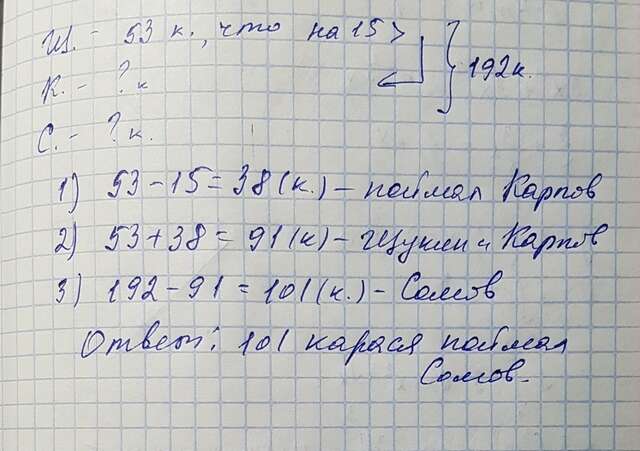 Щ. - 53 к., что на 15 >
К. - ? к
С. - ? к.
192 к.
1) 53 - 15 = 38 (к.) - поймал Карпов
2) 53 + 38 = 91 (к) - Щукин и Карпов
3) 192 - 91 = 101 (к.) - Сомов
Ответ: 101 карася поймал
Сомов.